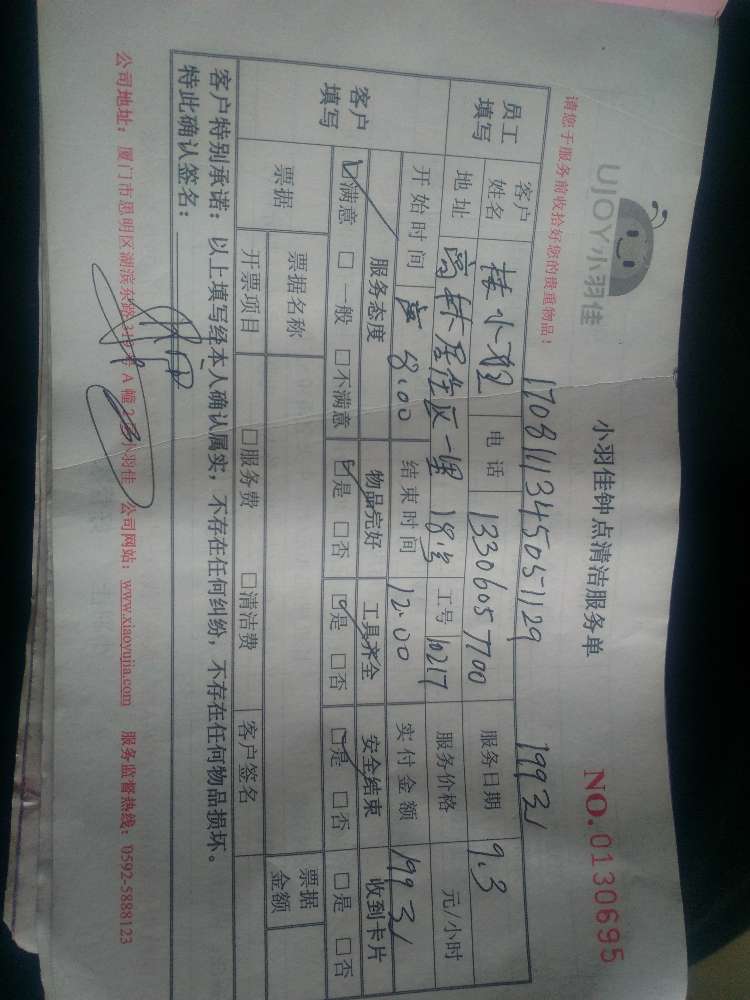 UJOY小羽佳
小羽佳钟点清洁服务单
NO. 0130695
请您于服务前收拾好您的贵重物品!
170811134505051129 199元
员工填写 客户姓名 林小姐 电话 13306057700 服务日期 9.3
地址 高林居住区一里18号 工号 10217 服务价格 元/小时
开始时间 8.00 结束时间 12.00 实付金额 199元
客户填写 服务态度 物品完好 工具齐全 安全结束 收到卡片
☑满意 □一般 □不满意 ☑是 □否 ☑是 □否 ☑是 □否 □是 □否
票据 票据名称 客户签名 票据金额
开票项目 □服务费 □清洁费
客户特别承诺:以上填写经本人确认属实,不存在任何纠纷,不存在任何物品损坏。
特此确认签名:
公司地址:厦门市思明区湖滨东路319号A幢2 小羽佳 公司网站:www.xiaoyujia.com 服务监督热线:0592-5888123